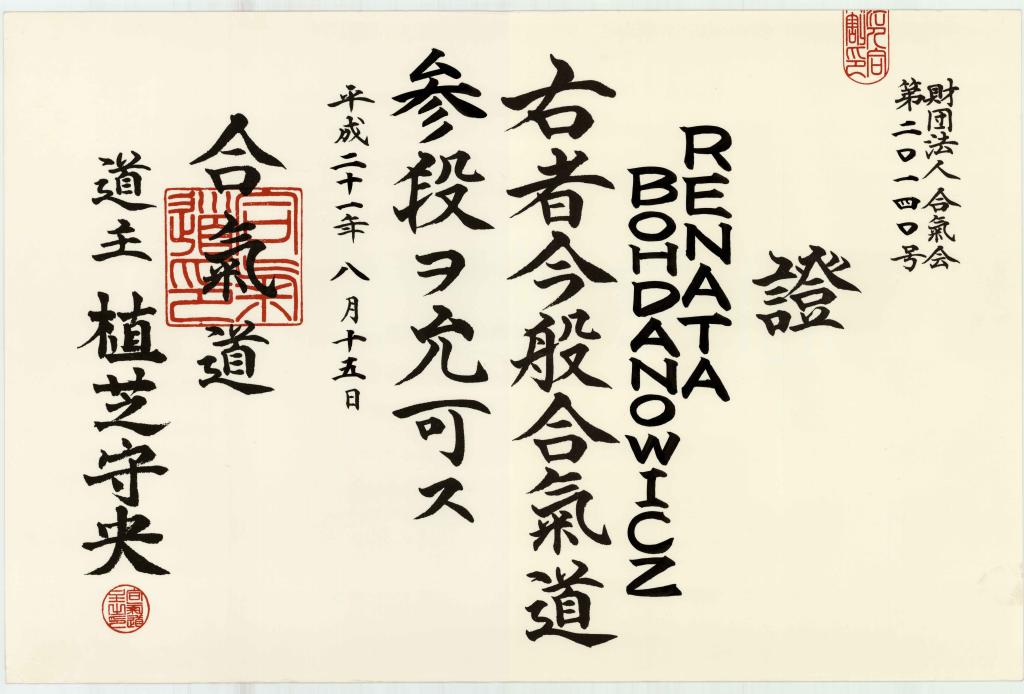 財団法人合氣会
第二〇一四〇号
證
RENATA
BOHDANOWICZ
右者今般合氣道
参段ヲ允可ス
平成二十一年八月十五日
合氣道
道主 植芝守央